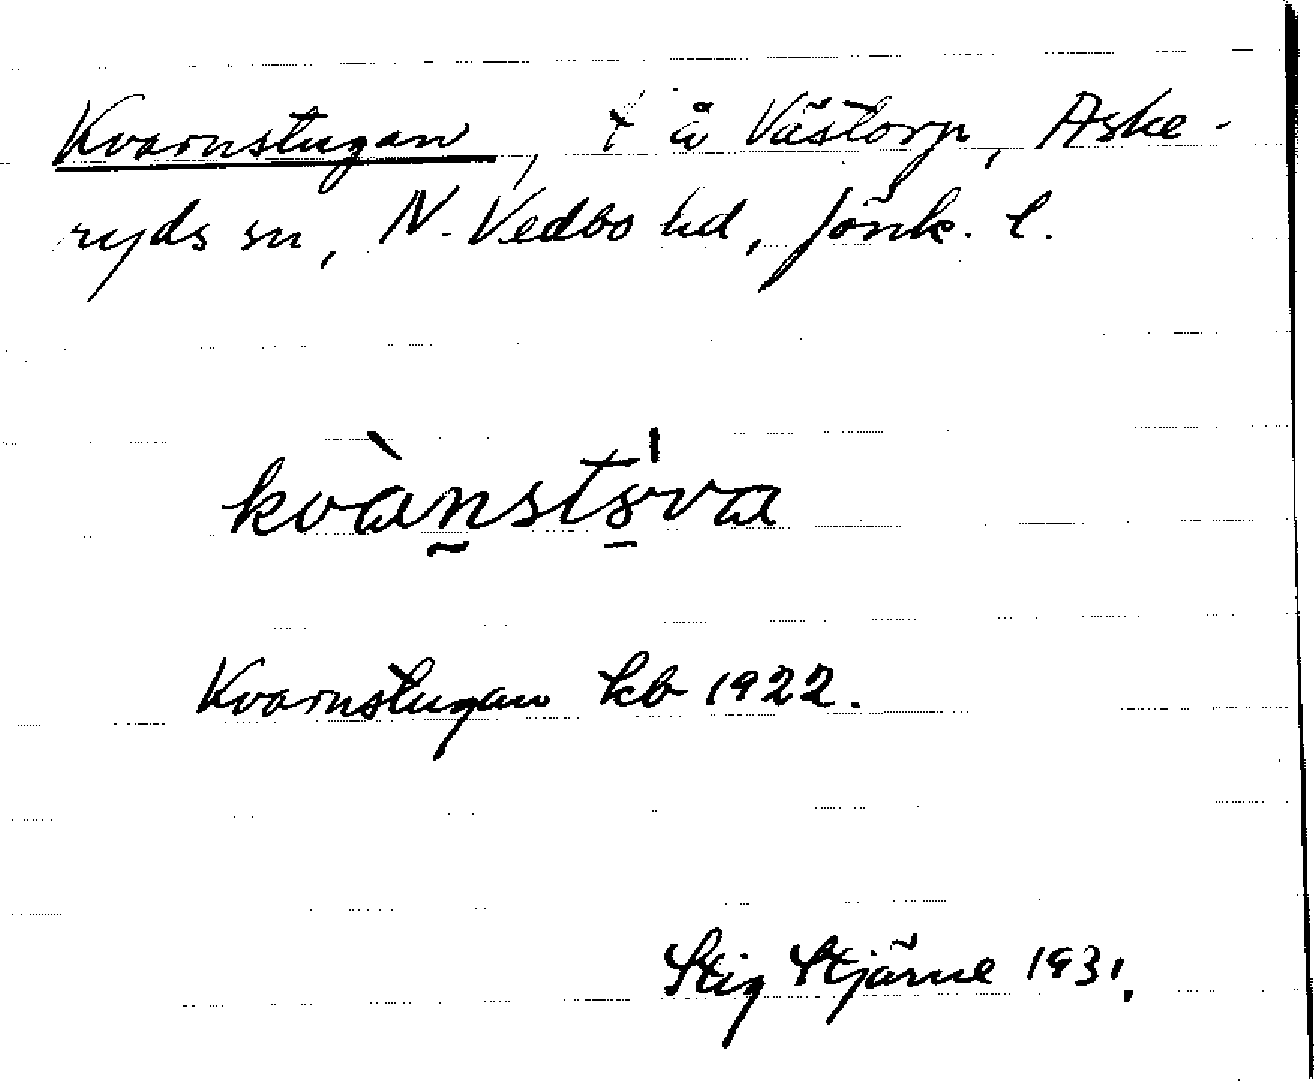 Kvarnstugan, t å Västorp, Aske-
ryds sn, N. Vedbo hd, Jönk. l.
kvàn̰stȣ̱̍va
Kvarnstugan kb 1922.
Stig Stjärne 1931.